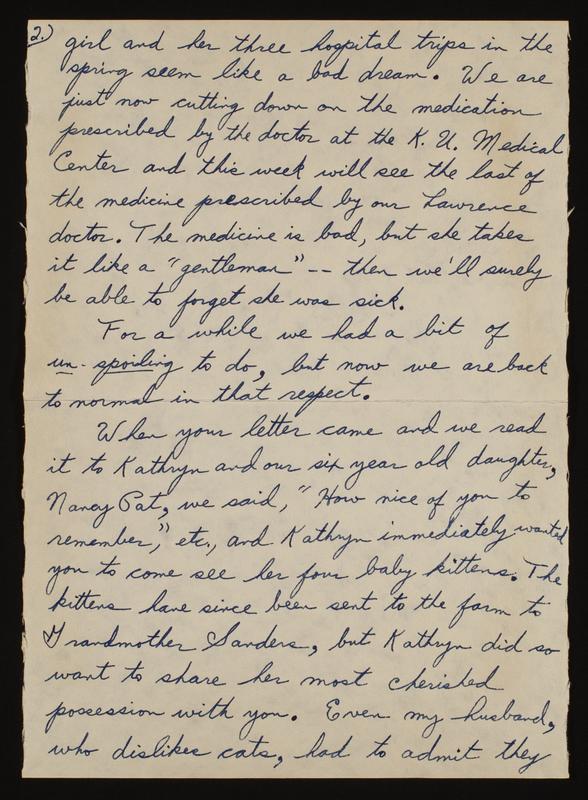 2.)
girl and her three hospital trips in the
spring seem like a bad dream. We are
just now cutting down on the medication
prescribed by the doctor at the K. U. Medical
Center and this week will see the last of
the medicine prescribed by our Lawrence
doctor. The medicine is bad, but she takes
it like a "gentleman" -- then we'll surely
be able to forget she was sick.
For a while we had a bit of
un-spoiling to do, but now we are back
to normal in that respect.
When your letter came and we read
it to Kathryn and our six year old daughter,
Nancy Pat, we said, "How nice of you to
remember," etc., and Kathryn immediately wanted
you to come see her four baby kittens. The
kittens have since been sent to the farm to
Grandmother Sanders, but Kathryn did so
want to share her most cherished
possession with you. Even my husband,
who dislikes cats, had to admit they